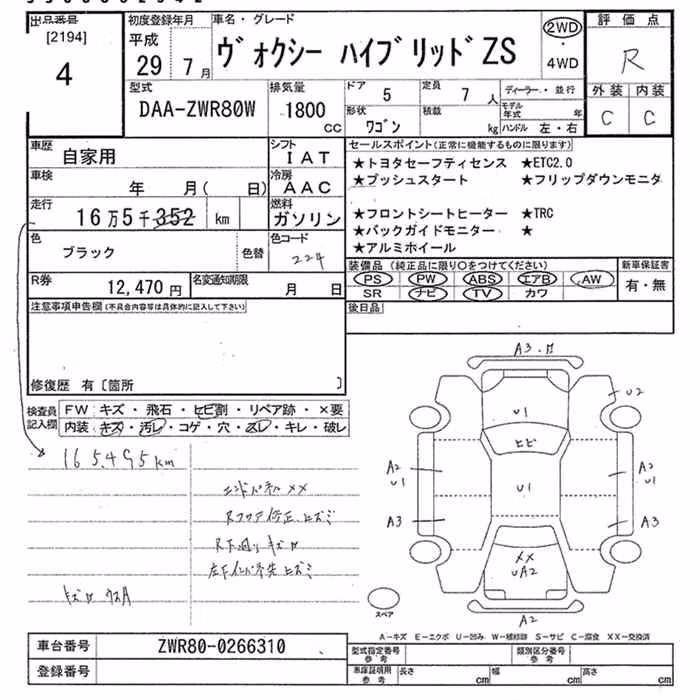 出品番号
[2194]
4
初度登録年月
平成
29年 7月
車名・グレード
ヴォクシー ハイブリッドZS
2WD
・
4WD
評価点
R
外装 内装
C C
型式
DAA-ZWR80W
排気量
1800
CC
ドア 5
定員 7 人
形状
ワゴン
積載
kg
ディーラー・並行
モデル年式 年
ハンドル 左・右
車歴
自家用
シフト
IAT
車検
年 月( 日)
冷房
AAC
走行
16万5千352 km
燃料
ガソリン
色
ブラック
色替
色コード
224
R券
12,470円
名変通知期限
月 日
セールスポイント(正常に機能するものに限ります)
★トヨタセーフティセンス ★ETC2.0
★プッシュスタート ★フリップダウンモニタ
★フロントシートヒーター ★TRC
★バックガイドモニター ★
★アルミホイール
装備品(純正品に限り○をつけてください)
PS PW ABS エアB AW
SR ナビ TV カワ
新車保証書
有・無
後日品
注意事項申告欄(不具合内容等は具体的に記入して下さい)
修復歴 有〔箇所 〕
検査員
記入欄
FW キズ・飛石・ヒビ割・リペア跡・×要
内装 キズ・汚レ・コゲ・穴・スレ・キレ・破レ
165,495km
エンドパネル××
Rフロア修正ヒズミ
R下廻りキズ
左下インパネ先ヒズミ
A3
U2
U1
ヒビ
A2
U1
U1
A2
U1
A3
A3
××
UA2
A2
スペア
A－キズ E－エクボ U－凹み W－補修跡 S－サビ C－腐食 XX－交換済
車台番号 ZWR80-0266310
登録番号
型式指定番号
参考
類別区分番号
参考
車庫証明用
参考
長さ cm 幅 cm 高さ cm